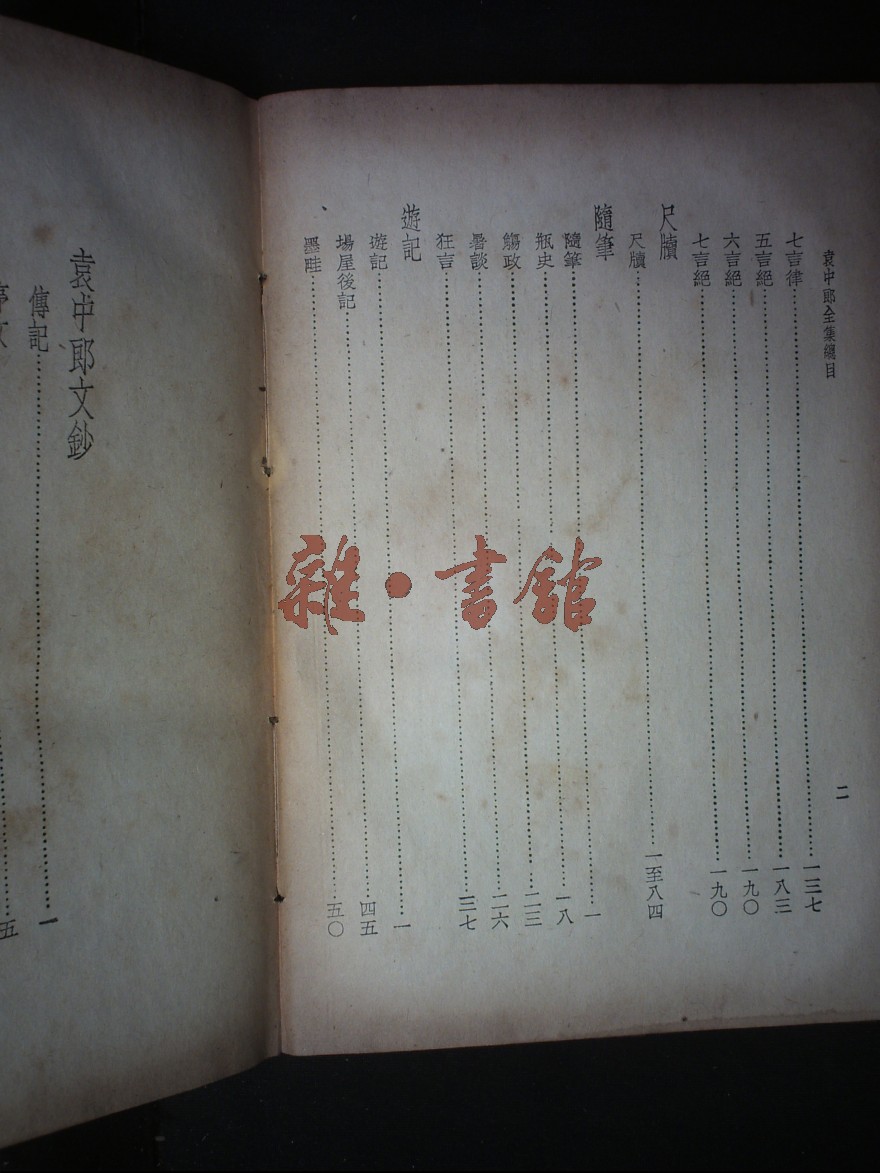 袁中郎全集總目
二
七言律………一三七
五言絕………一八三
六言絕………一九〇
七言絕………一九〇
尺牘
尺牘………一至八四
隨筆
隨筆………一
瓶史………一八
觴政………二三
暑談………二六
狂言………三七
遊記
遊記………一
場屋後記………四五
墨畦………五〇
袁中郎文鈔
傳記………一
五
雜·書館